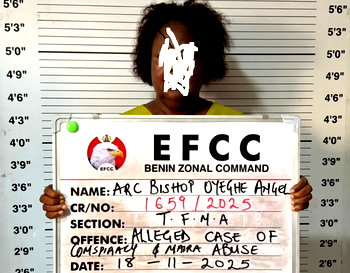 5'6"
5'6"
5'3"
5'3"
5'0"
5'0"
4'9"
4'9"
4'6"
4'6"
4'3"
4'3"
4'0"
4'0"
3'9"
3'9"
3'6"
3'6"
3'3"
3'3"
3'0"
3'0"
2'9"
2'9"
2'6"
2'6"
2'3"
2'3"
EFCC
EFCC
BENIN ZONAL COMMAND
NAME: ARC BISHOP OYEGHE ANGEL
CR/NO: 1659/2025
SECTION: T.F.M.A
OFFENCE: ALLEGED CASE OF
CONSPIRACY & NAIRA ABUSE
DATE: 18-11-2025